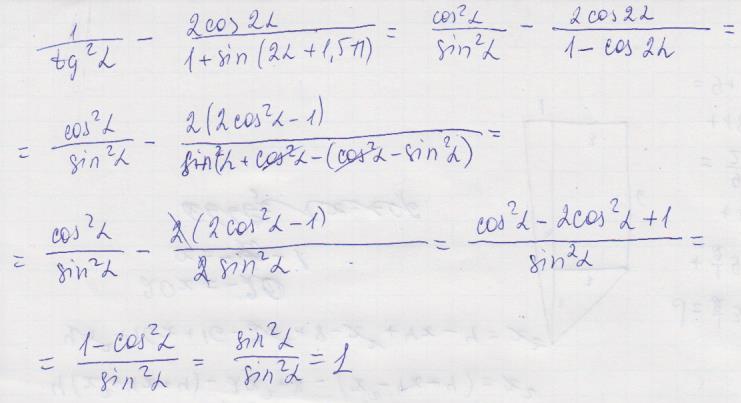 1/tg²α − 2cos2α/(1+sin(2α+1,5π)) = cos²α/sin²α − 2cos2α/(1−cos2α) =
= cos²α/sin²α − 2(2cos²α−1)/(sin²α+cos²α−(cos²α−sin²α)) =
= cos²α/sin²α − 2(2cos²α−1)/(2sin²α) = (cos²α−2cos²α+1)/sin²α =
= (1−cos²α)/sin²α = sin²α/sin²α = 1